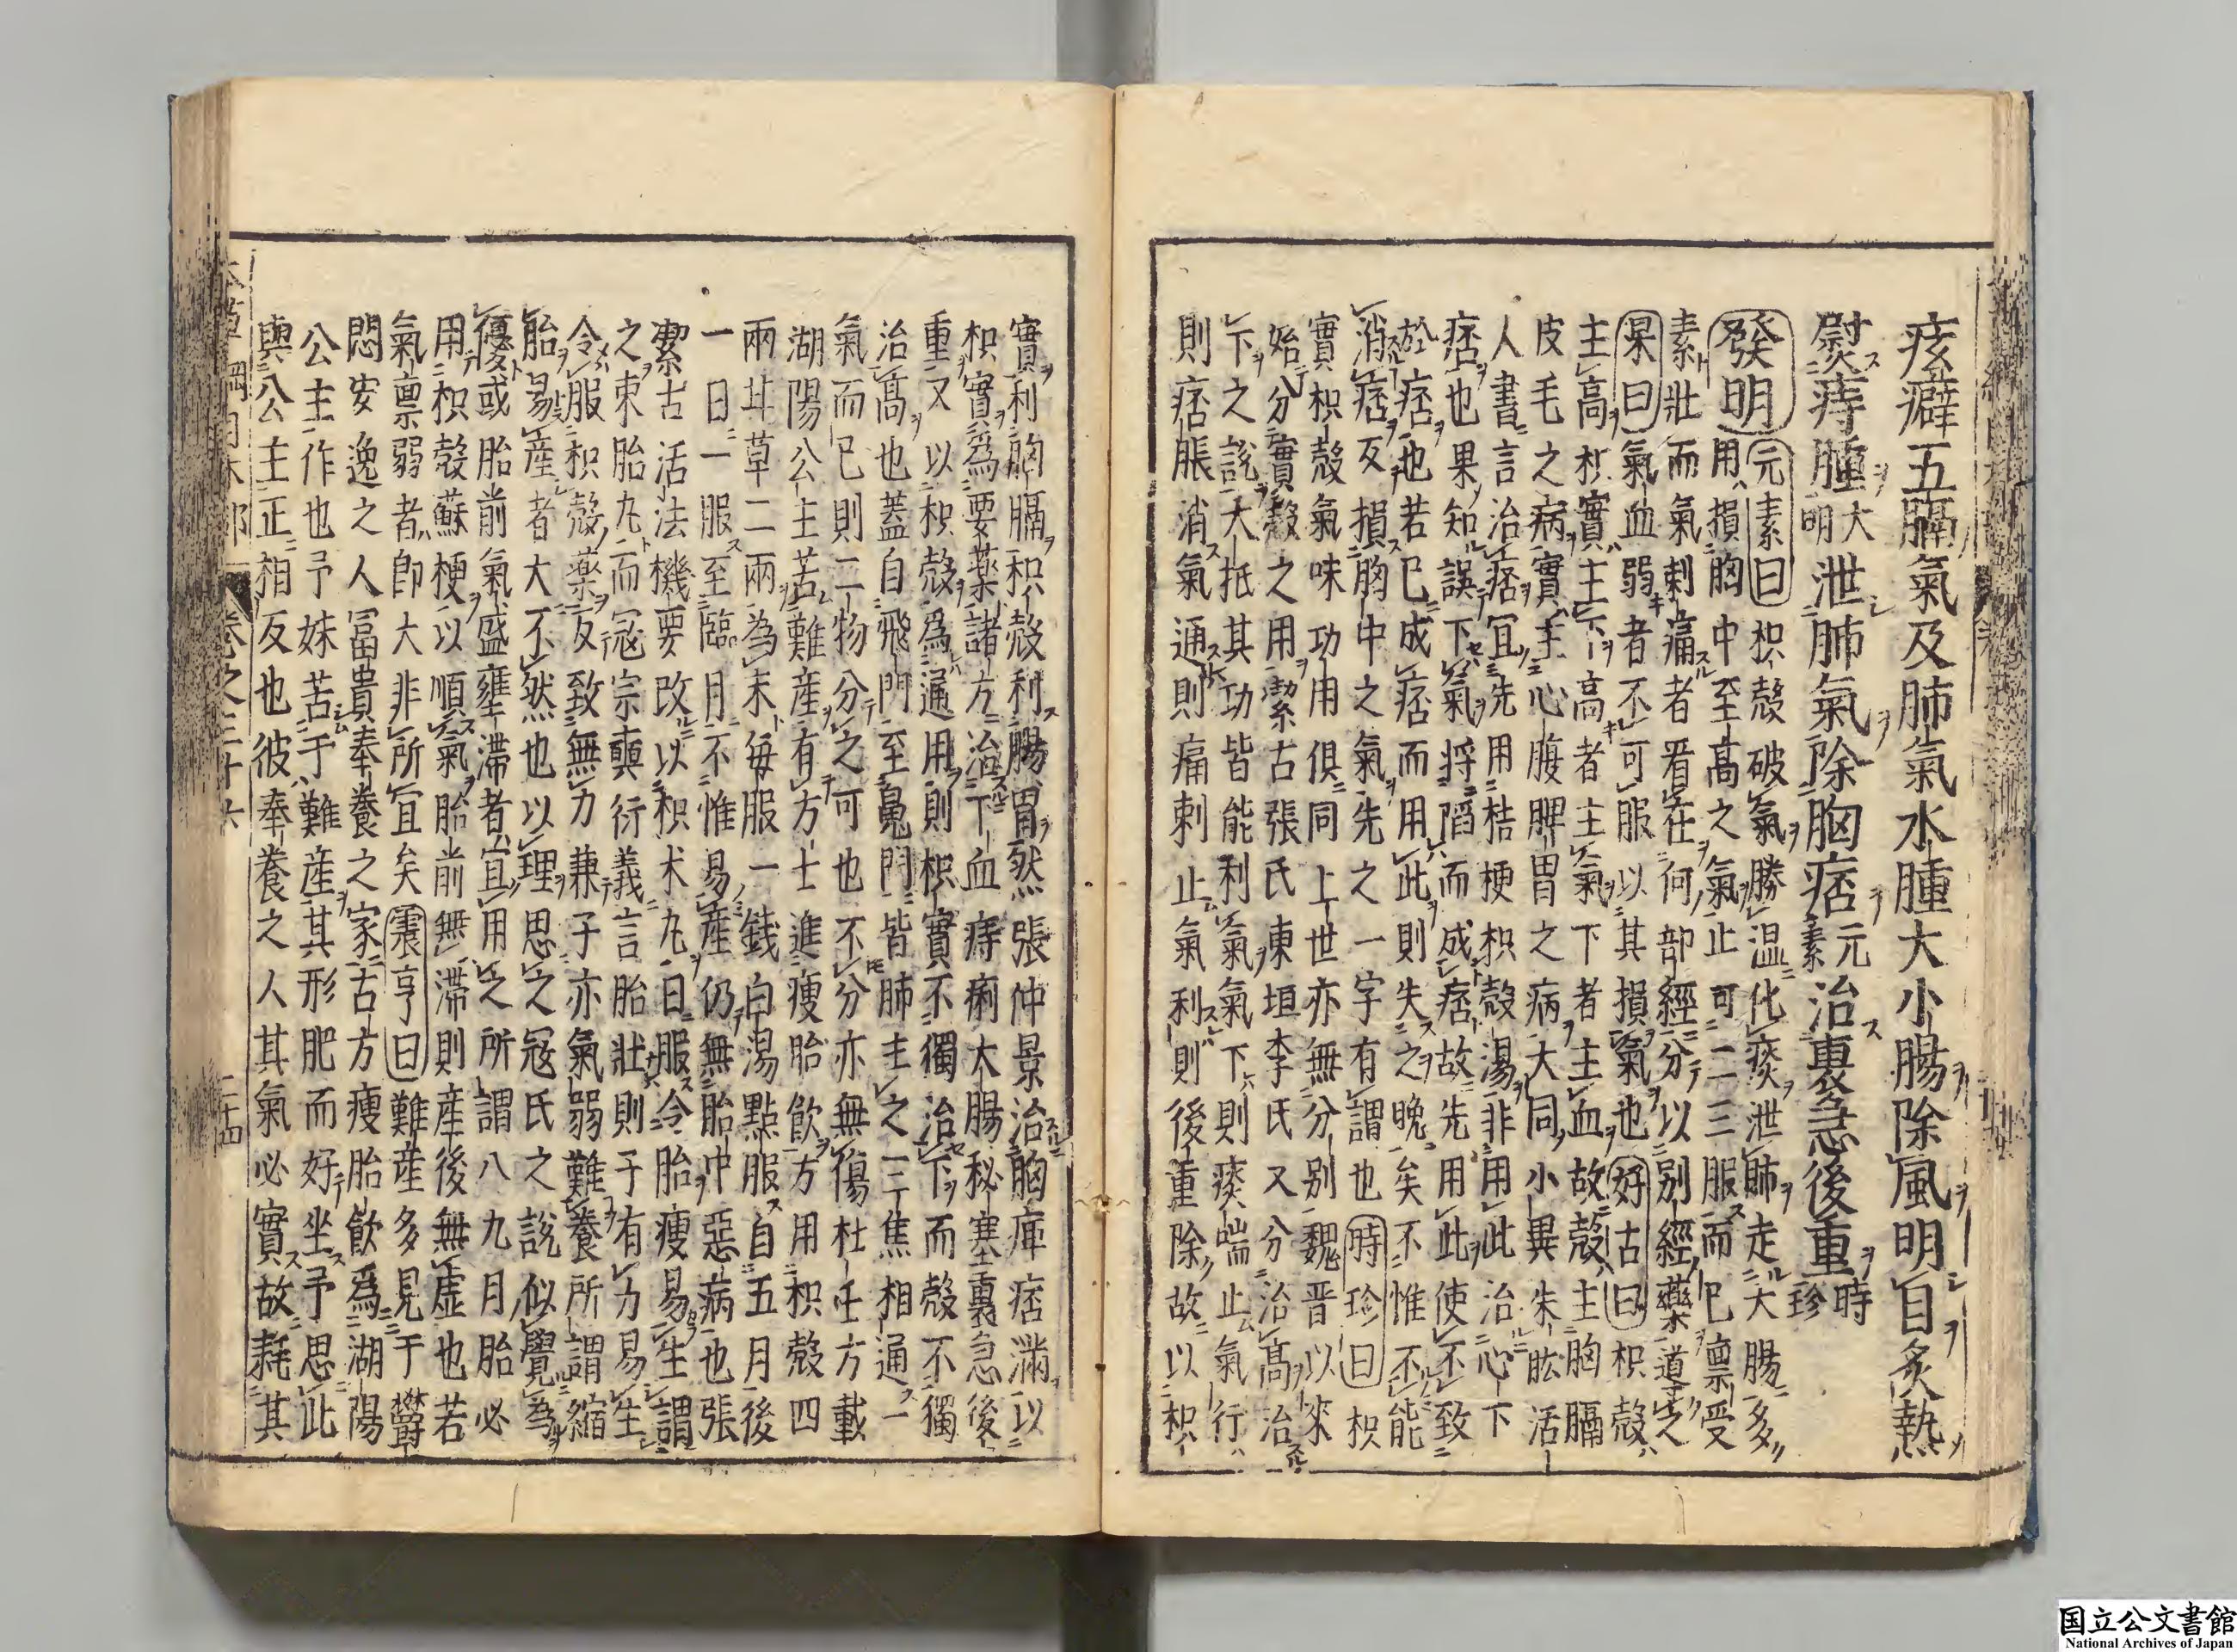 痃癖五膈氣及肺氣水腫大小腸除風明目炙熱
熨痔腫大明泄肺氣除胸痞元素治裏急後重時珍
發明元素曰枳殼破氣勝温化痰泄肺走大腸多
用損胸中至髙之氣止可二三服而已禀受
素壯而氣刺痛者看在何部經分以别經藥道之
杲曰氣血弱者不可服以其損氣也好古曰枳殼
主高枳實主下高者主氣下者主血故殼主胸膈
皮毛之病實主心腹脾胃之病大同小異朱肱活
人書言治痞宜先用桔梗枳殼湯非用此治心下
痞也果知誤下氣將陷而成痞故先用此使不致
於痞也若已成痞而用此則失之晩矣不惟不能
消痞反損胸中之氣先之一字有謂也時珍曰枳
實枳殼氣味功用俱同上世亦無分别魏晋以來
始分實殼之用潔古張氏東垣李氏又分治髙治
下之說大抵其功皆能利氣氣下則痰喘止氣行
則痞脹消氣通則痛刺止氣利則後重除故以枳
實利胸膈枳殼利腸胃然張仲景治胸痺痞滿以
枳實爲要藥諸方治下血痔痢大腸秘塞裏急後
重又以枳殼爲通用則枳實不獨治下而殼不獨
治髙也蓋自飛門至魄門皆肺主之三焦相通一
氣而已則二物分之可也不分亦無傷杜壬方載
湖陽公主苦難産有方士進瘦胎飲方用枳殼四
兩甘草二兩為末每服一錢白湯點服自五月後
一日一服至臨月不惟易産仍無胎中惡病也張
潔古活法機要改以枳术丸日服令胎瘦易生謂
之束胎丸而冦宗奭衍義言胎壯則子有力易生
令服枳殼藥反致無力兼子亦氣弱難養所謂縮
胎易産者大不然也以理思之冦氏之說似覺為
優或胎前氣盛壅滯者宜用之所謂八九月胎必
用枳殼蘇梗以順氣胎前無滯則産後無虛也若
氣禀弱者即大非所宜矣震亨曰難産多見于鬱
悶安逸之人冨貴奉養之家古方瘦胎飲爲湖陽
公主作也予妹苦于難産其形肥而好坐予思此
與公主正相反也彼奉養之人其氣必實故耗其
卷之三十六
二十四
国立公文書館
National Archives of Japan